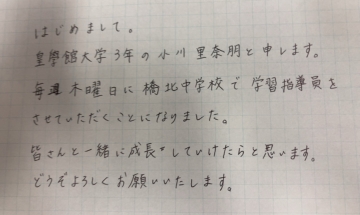 はじめまして。
皇學館大学3年の小川里奈朋と申します。
毎週木曜日に橋北中学校で学習指導員を
させていただくことになりました。
皆さんと一緒に成長していけたらと思います。
どうぞよろしくお願いいたします。